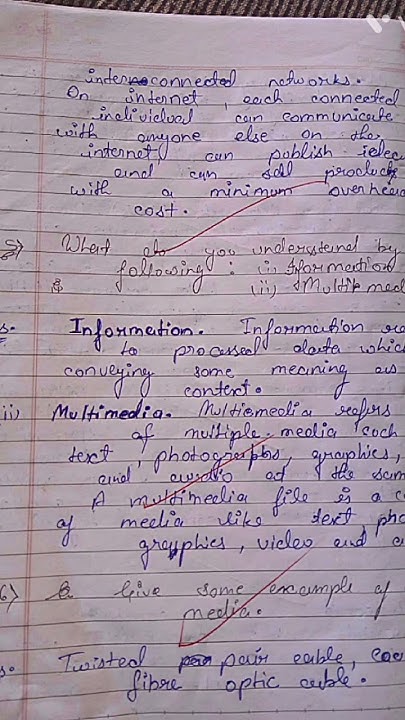 interconnected networks.
On internet, each connected
individual can communicate
with anyone else on the
internet, can publish
and can sell products
with a minimum overhead
cost.
5) What do you understand by
following: (i) Information
(ii) Multimed
s. Information. Information
to processed data whic
conveying some meaning as
context.
ii) Multimedia. Multiemedia refers
of multiple media
text, photographs, graphics,
and audio at the sam
A multimedia file is a
of media like text, pho
grapphics, video and
6) Give some example of
media.
s. Twisted pair cable,
fibre optic cable.